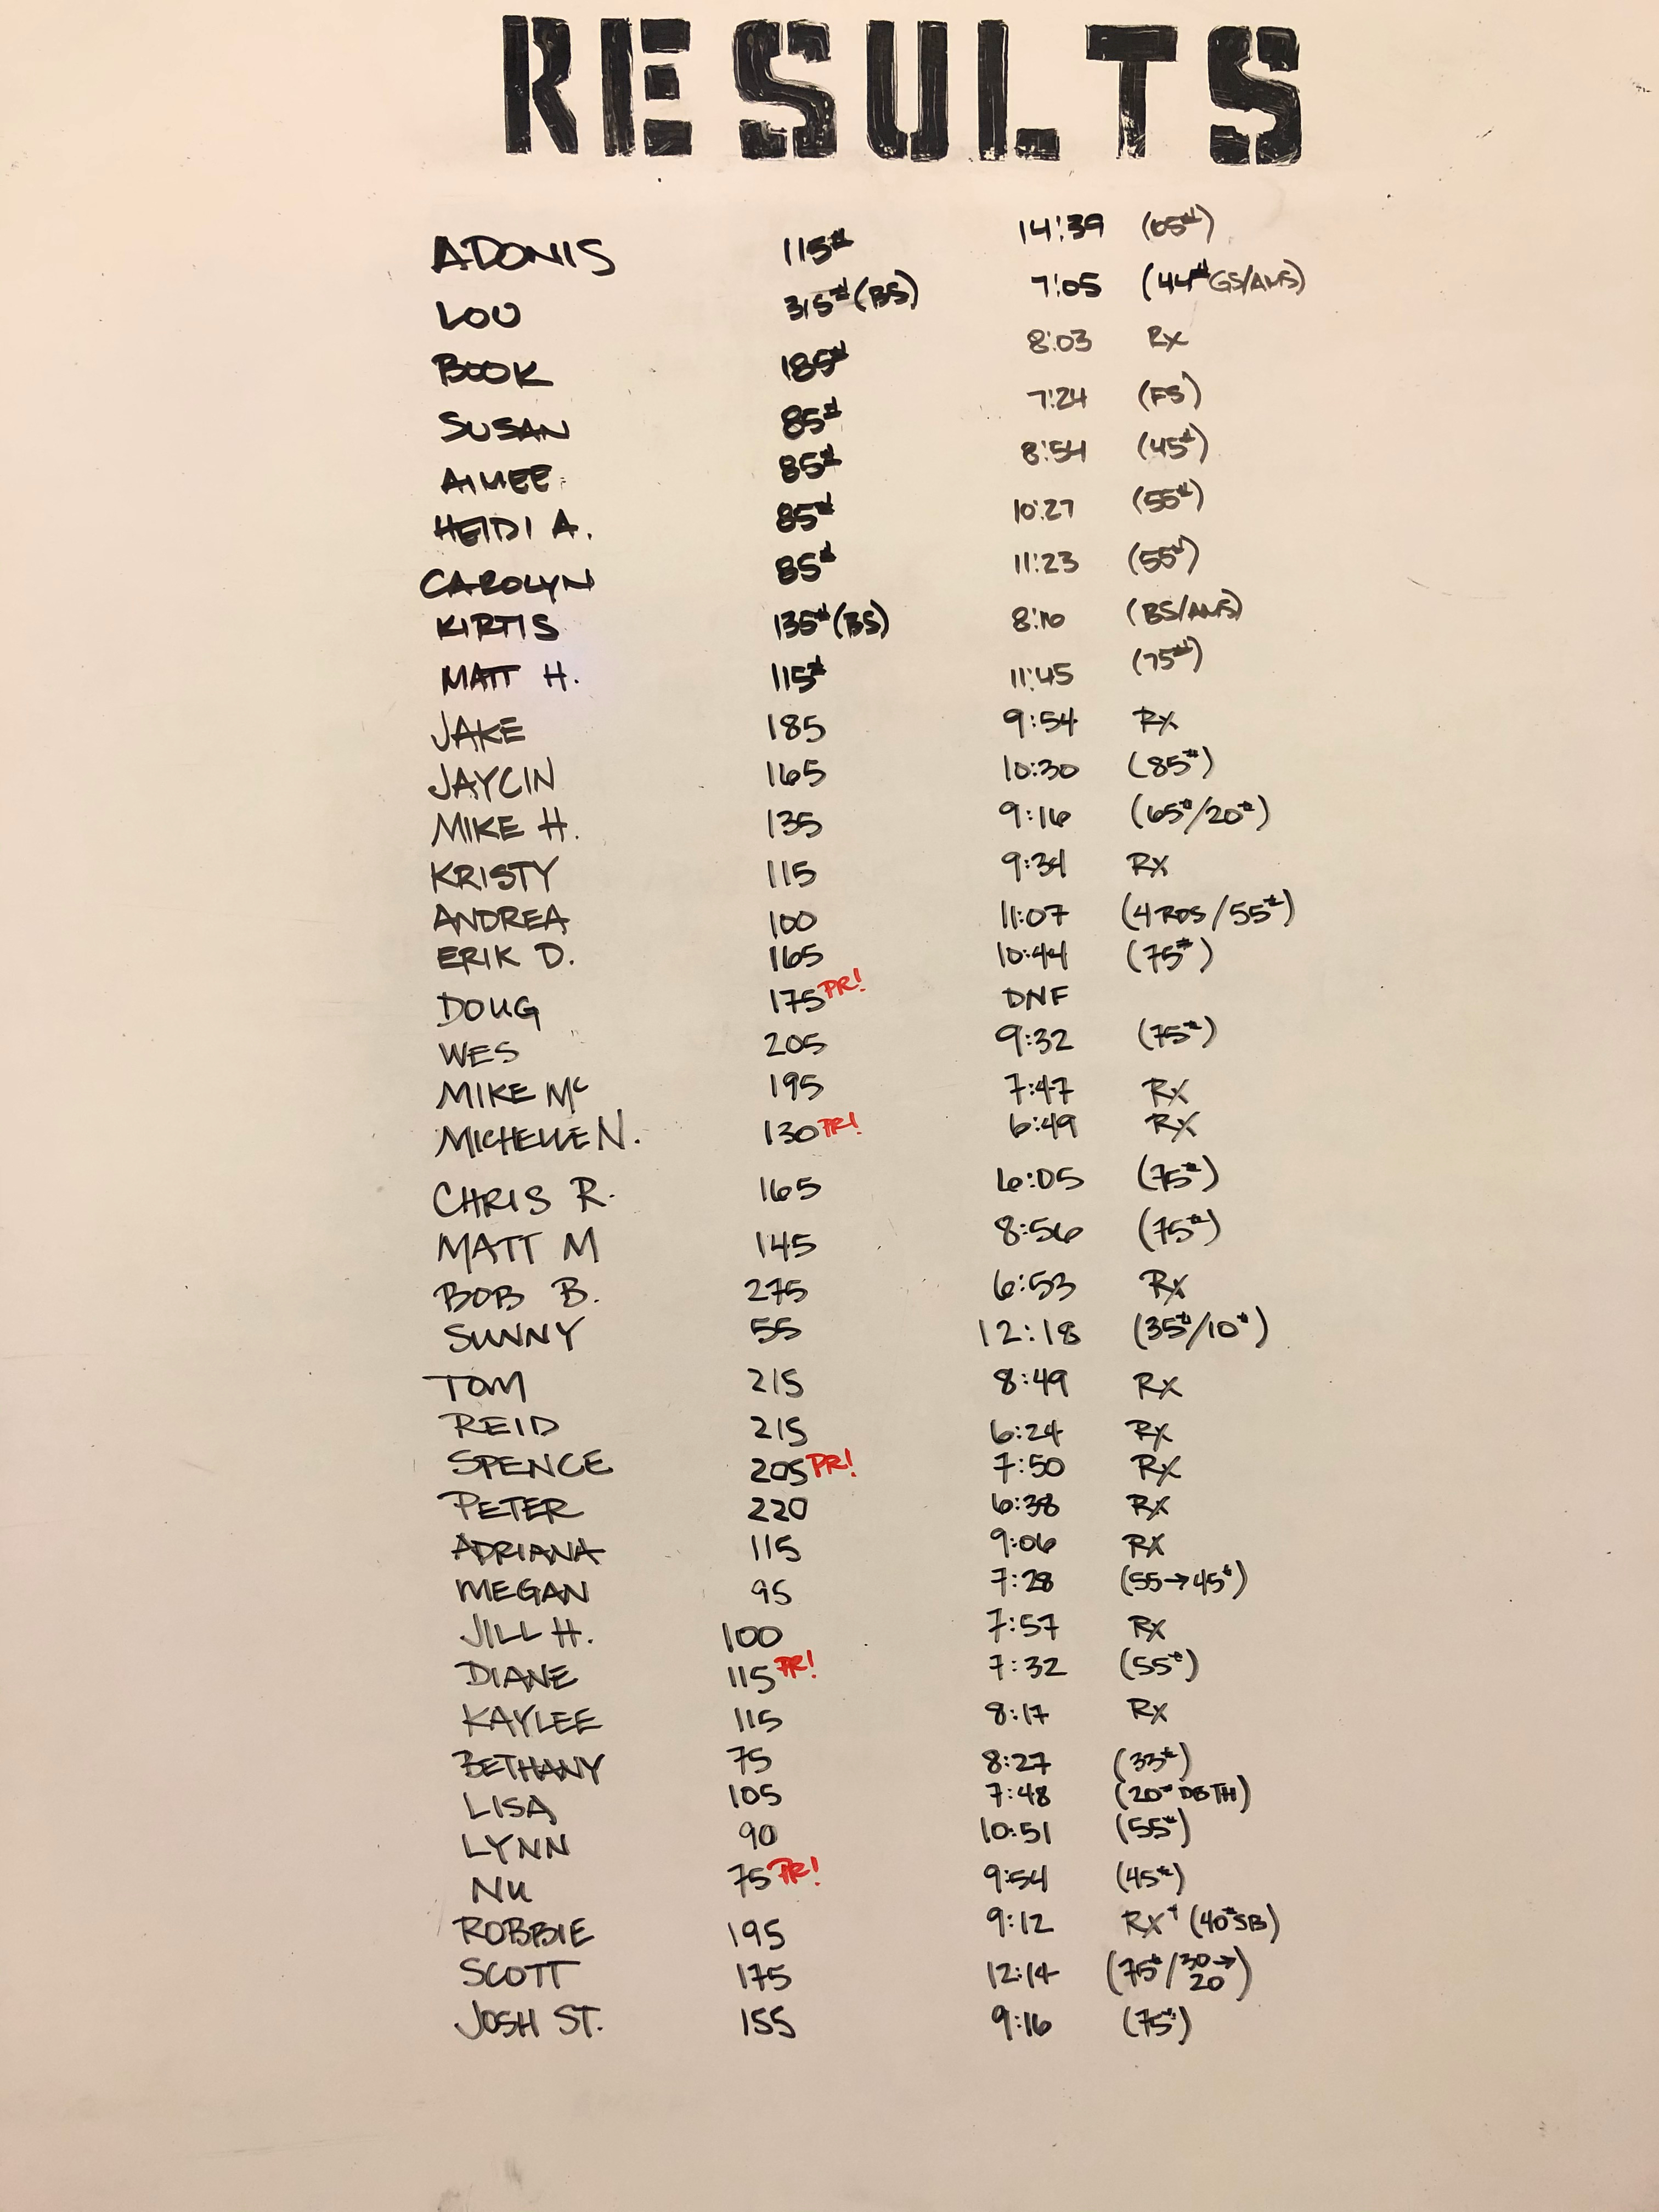 RESULTS
ADONIS 115# 14:39 (65#)
LOU 315# (BS) 7:05 (44# GS/AMS)
BOOK 185# 8:03 Rx
SUSAN 85# 7:24 (FS)
AIMEE 85# 8:54 (45#)
HEIDI A. 85# 10:27 (55#)
CAROLYN 85# 11:23 (55#)
KIRTIS 135# (BS) 8:10 (BS/AMS)
MATT H. 115# 11:45 (75#)
JAKE 185 9:54 Rx
JAYCIN 165 10:30 (85#)
MIKE H. 135 9:16 (65#/20#)
KRISTY 115 9:34 Rx
ANDREA 100 11:07 (4 RDS/55#)
ERIK D. 165 10:44 (75#)
DOUG 175 PR! DNF
WES 205 9:32 (75#)
MIKE Mc 195 7:47 Rx
MICHELLE N. 130 PR! 6:49 Rx
CHRIS R. 165 6:05 (75#)
MATT M 145 8:56 (75#)
BOB B. 275 6:53 Rx
SUNNY 55 12:18 (35#/10#)
TOM 215 8:49 Rx
REID 215 6:24 Rx
SPENCE 205 PR! 7:50 Rx
PETER 220 6:38 Rx
ADRIANA 115 9:06 Rx
MEGAN 95 7:28 (55→45#)
JILL H. 100 7:57 Rx
DIANE 115 PR! 7:32 (55#)
KAYLEE 115 8:17 Rx
BETHANY 75 8:27 (33#)
LISA 105 7:48 (20# DBTH)
LYNN 90 10:51 (55#)
NU 75 PR! 9:54 (45#)
ROBBIE 195 9:12 Rx+ (40# SB)
SCOTT 175 12:14 (75#/30→20)
JOSH ST. 155 9:16 (75#)